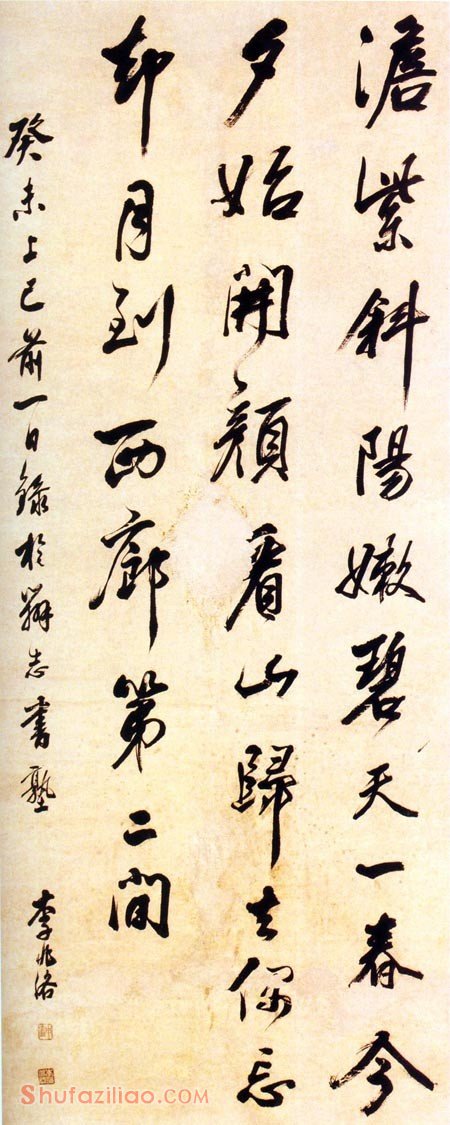 澹紫斜陽嫩碧天一春今
夕始開顏看山歸去偶忘
却月到西廊第二間
癸未上巳前一日錄於辨志書塾
李兆洛
Shufaziliao.COM